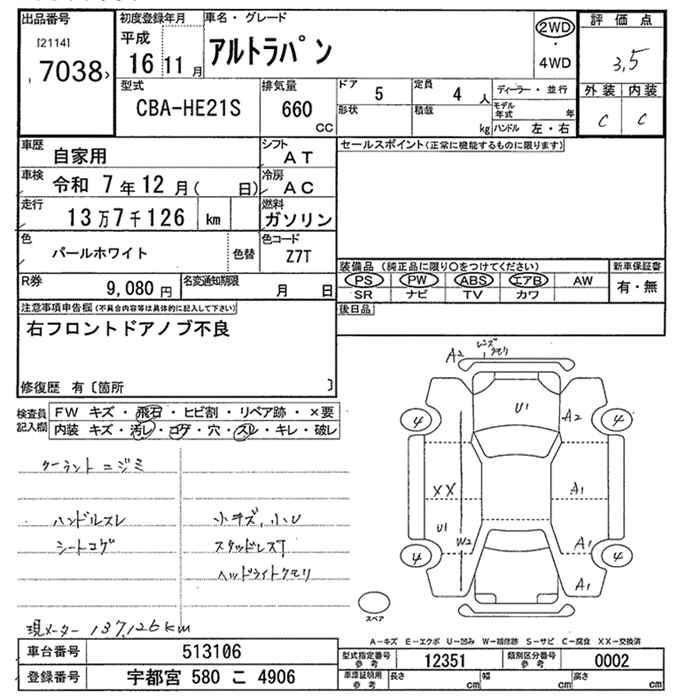 出品番号 初度登録年月 車名・グレード 2WD・4WD 評価点
[2114] 7038 平成 16 11月 アルトラパン 3,5
型式 CBA-HE21S 排気量 660 CC ドア 5 定員 4 人 ディーラー・並行 外装 内装
形状 積載 kg モデル年式 年 ハンドル 左・右 C C
車歴 自家用 シフト AT セールスポイント(正常に機能するものに限ります)
車検 令和 7年12月( 日) 冷房 AC
走行 13万7千126 km 燃料 ガソリン
色 パールホワイト 色替 色コード Z7T
装備品(純正品に限り〇をつけてください) 新車保証書
R券 9,080円 名変通知期限 月 日 PS PW ABS エアB AW 有・無
SR ナビ TV カワ
注意事項申告欄(不具合内容等は具体的に記入して下さい) 後日品
右フロントドアノブ不良
修復歴 有〔箇所 〕
検査員記入欄 FW キズ・飛石・ヒビ割・リペア跡・×要
内装 キズ・汚レ・コゲ・穴・スレ・キレ・破レ
A2 レンズクモリ
U1 A2
4 4
XX A1
U1 W2 A1
4 4
A1
クーラントニジミ
ハンドルスレ 小キズ,小U
シートコゲ スタッドレスT
ヘッドライトクモリ
スペア
現メーター 137,126km
A-キズ E-エクボ U-凹み W-補修跡 S-サビ C-腐食 XX-交換済
車台番号 513106 型式指定番号 参考 12351 類別区分番号 参考 0002
登録番号 宇都宮 580 こ 4906 車庫証明用 参考 長さ cm 幅 cm 高さ cm